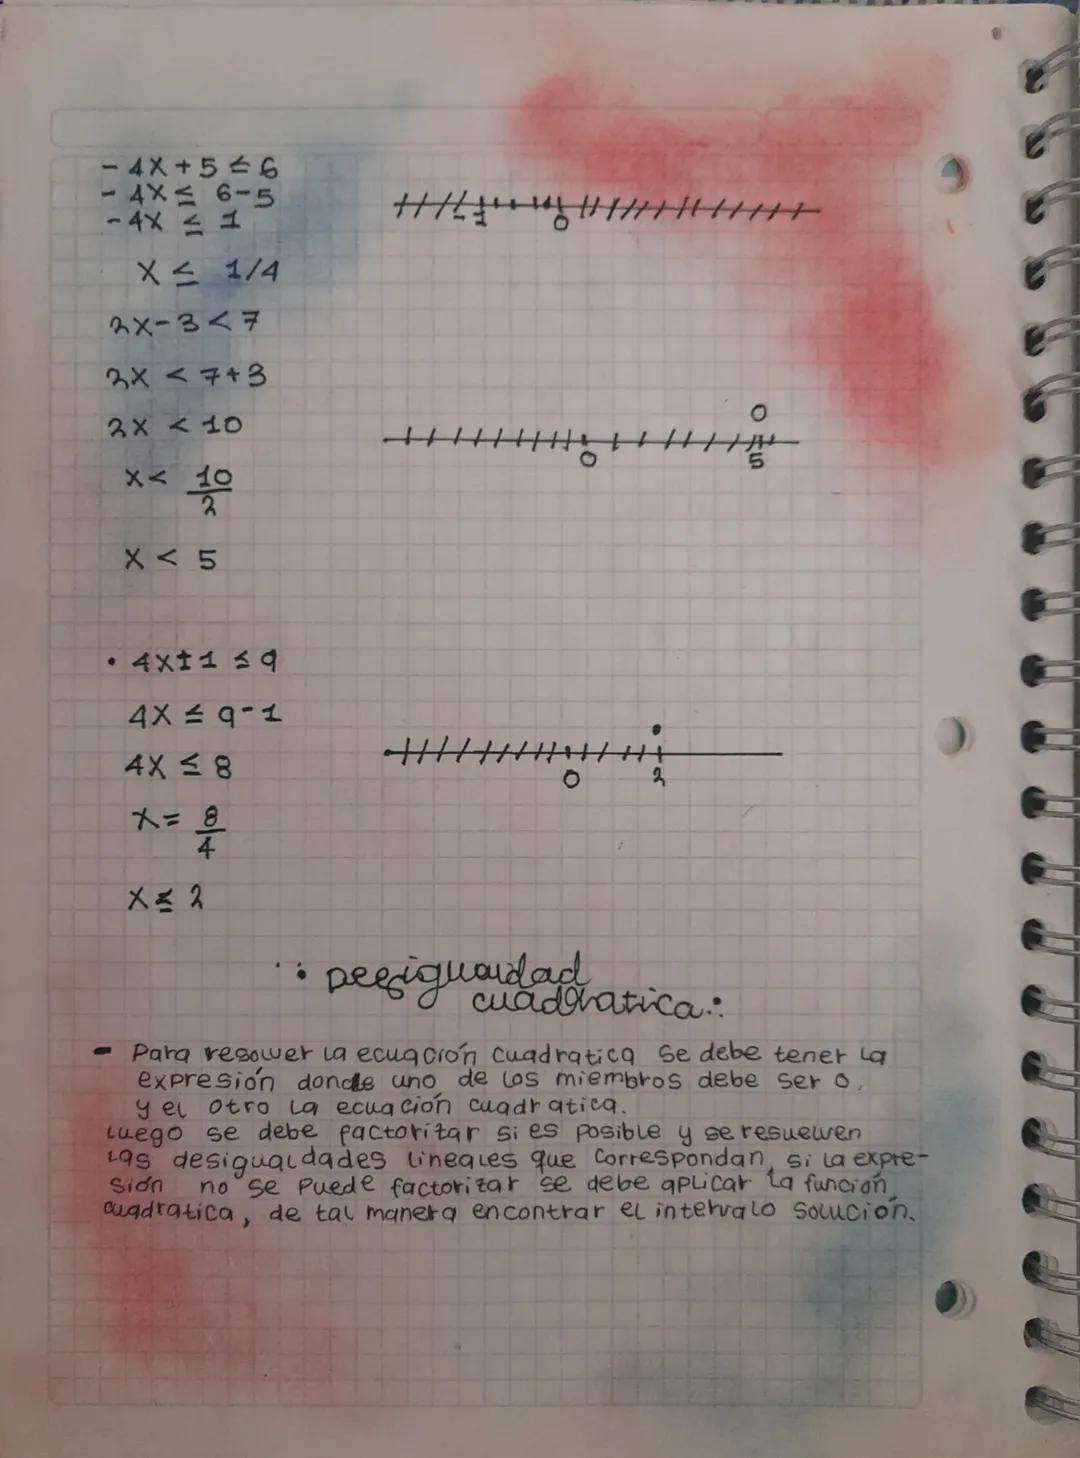 - 4X + 5 ≤ 6
- 4X ≤ 6-5
- 4X ≤ 1
X ≤ 1/4
-1 0
2X-3<7
2X < 7+3
2X < 10
X< 10/2
X < 5
0
0 5
• 4X±1 ≤9
4X ≤ 9-1
4X ≤ 8
X= 8/4
X ≤ 2
0 2
∴ Desigualdad
cuadratica ∴
- Para resolver la ecuación cuadratica se debe tener la
expresión donde uno de los miembros debe ser 0,
y el otro la ecuación cuadratica.
Luego se debe factorizar si es posible y se resuelven
las desigualdades lineales que correspondan, si la expre-
sión no se puede factorizar se debe aplicar la función
cuadratica, de tal manera encontrar el intervalo solución.